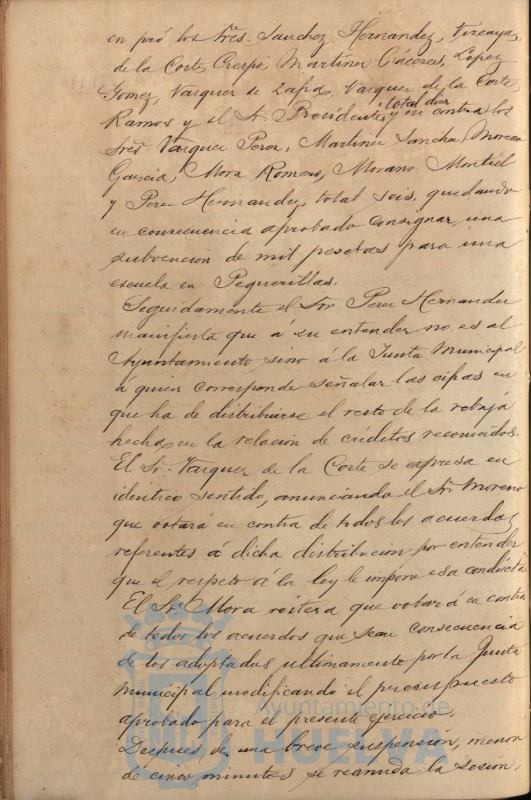 en pró los Sres. Sanchez Hernandez, Vizcaya,
de la Corte, Crespo, Martinez Cáceres, Lopez
Gomez, Vazquez de Zafra, Vazquez de la Corte,
Ramos y el Sr. Presidente, total diez y en contra los
Sres Vazquez Perez, Martinez Sancha, Moreno
Garcia, Mora Romero, Morano Montiel
y Perez Hernandez, total seis, quedando
en consecuencia aprobado consignar una
subvencion de mil pesetas para una
escuela en Peguerillas.
Seguidamente el Sr. Perez Hernandez
manifiesta que á su entender no es al
Ayuntamiento sino á la Junta Municipal
á quien corresponde señalar las cifras en
que ha de distribuirse el resto de la rebaja
hecha en la relación de créditos reconocidos.
El Sr. Vazquez de la Corte se expresa en
identico sentido, anunciando el Sr. Moreno
que votará en contra de todos los acuerdos
referentes á dicha distribucion por entender
que el respeto á la ley le impone esa conducta
El Sr. Mora reitera que votará en contra
de todos los acuerdos que sean consecuencia
de los adoptados ultimamente por la Junta
municipal modificando el presupuesto
aprobado para el presente ejercicio.
Despues de una breve suspension, menor
de cinco minutos se reanuda la sesión,
Ayuntamiento de
HUELVA